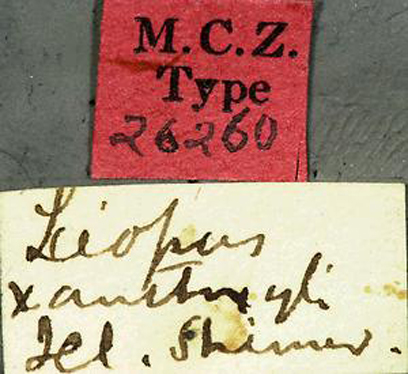 M.C.Z.
Type
26260
Leiopus
xanthoxyli
Ill. Shimer.